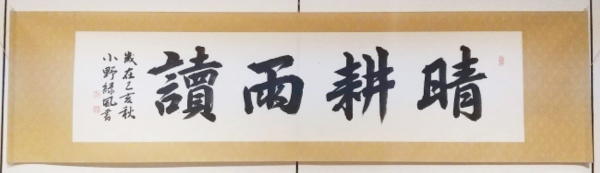 晴耕雨讀
歲在乙亥秋
小野緑風書